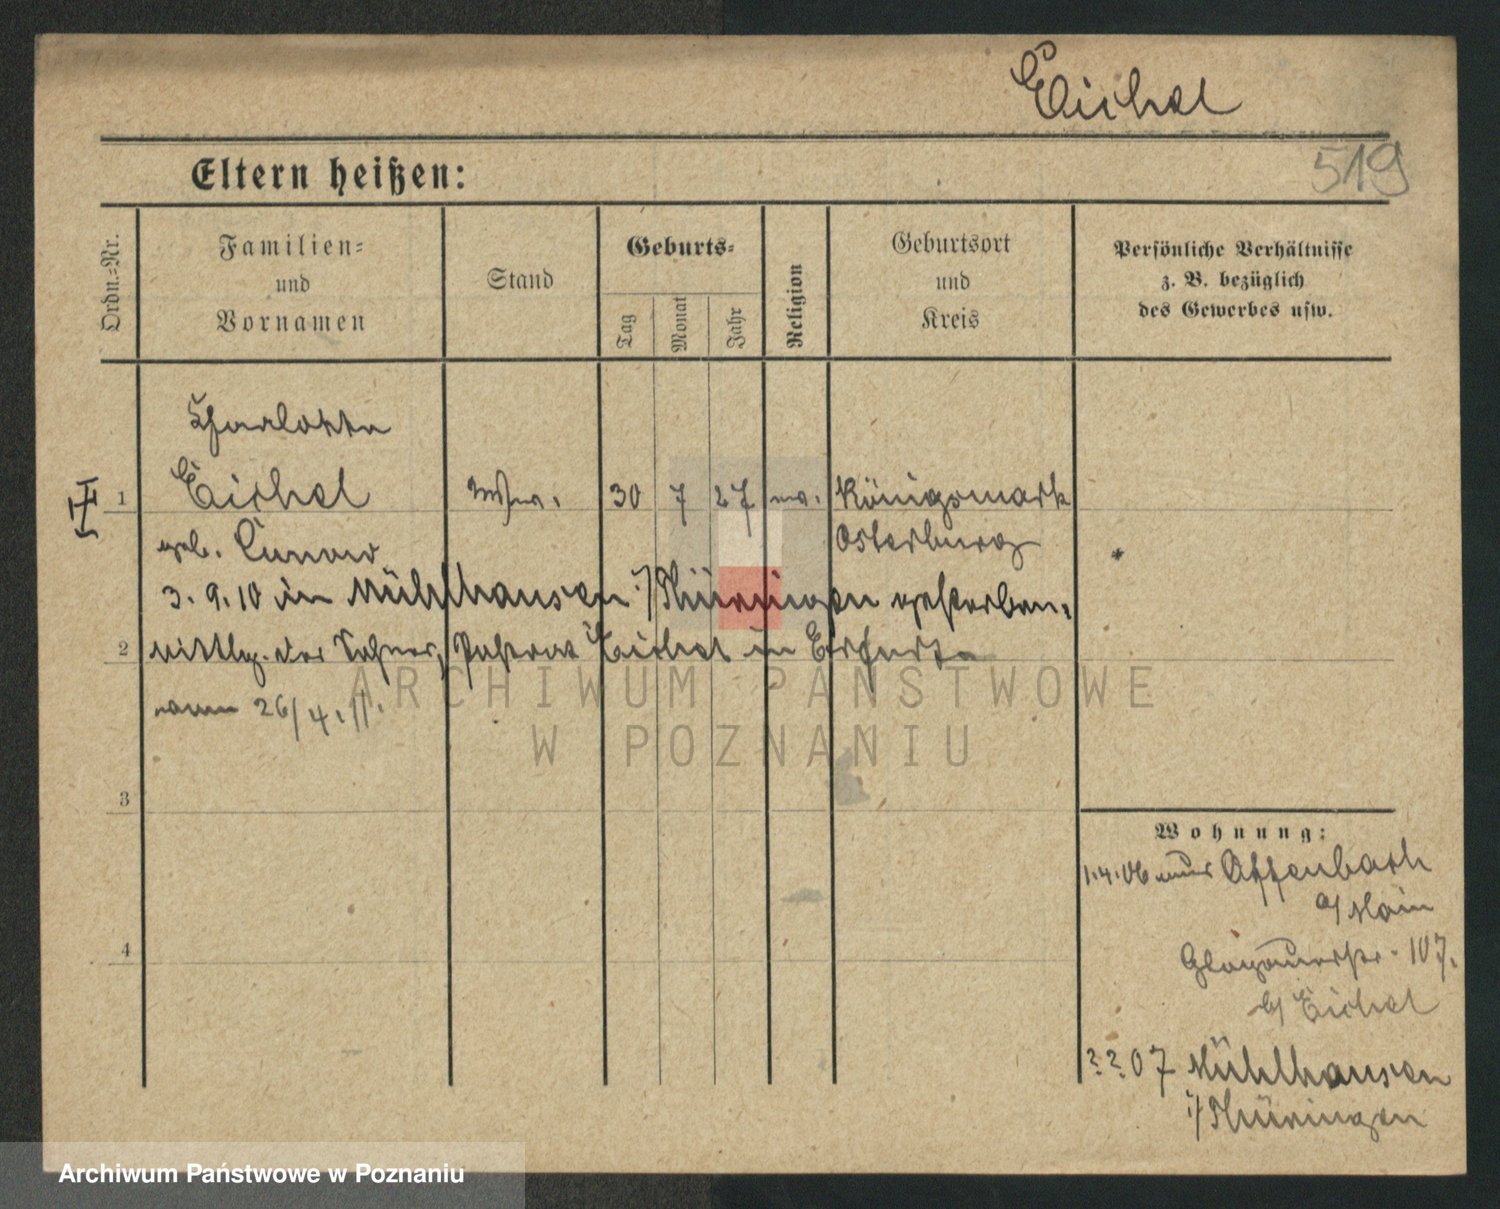 Eichel
519
Eltern heißen:
Ordn.=Nr.
Familien=
und
Vornamen
Stand
Geburts=
Tag
Monat
Jahr
Religion
Geburtsort
und
Kreis
Persönliche Verhältnisse
z. B. bezüglich
des Gewerbes usw.
Charlotte
1 Eichel Wwe. 30 7 27 ev. Königsmark
geb. Cunow Osterburg
3.9.10 in Mühlhausen i/Thüringen gestorben.
2 Mittlg. des Sohnes, Pastors Eichel in Erfurt
vom 26/4.11.
3
4
Wohnung:
1.4.06 aus Offenbach
a/Main
Glogauerstr. 107.
b/ Eichel
?.?.07 Mühlhausen
i/Thüringen
ARCHIWUM PAŃSTWOWE
W POZNANIU
Archiwum Państwowe w Poznaniu